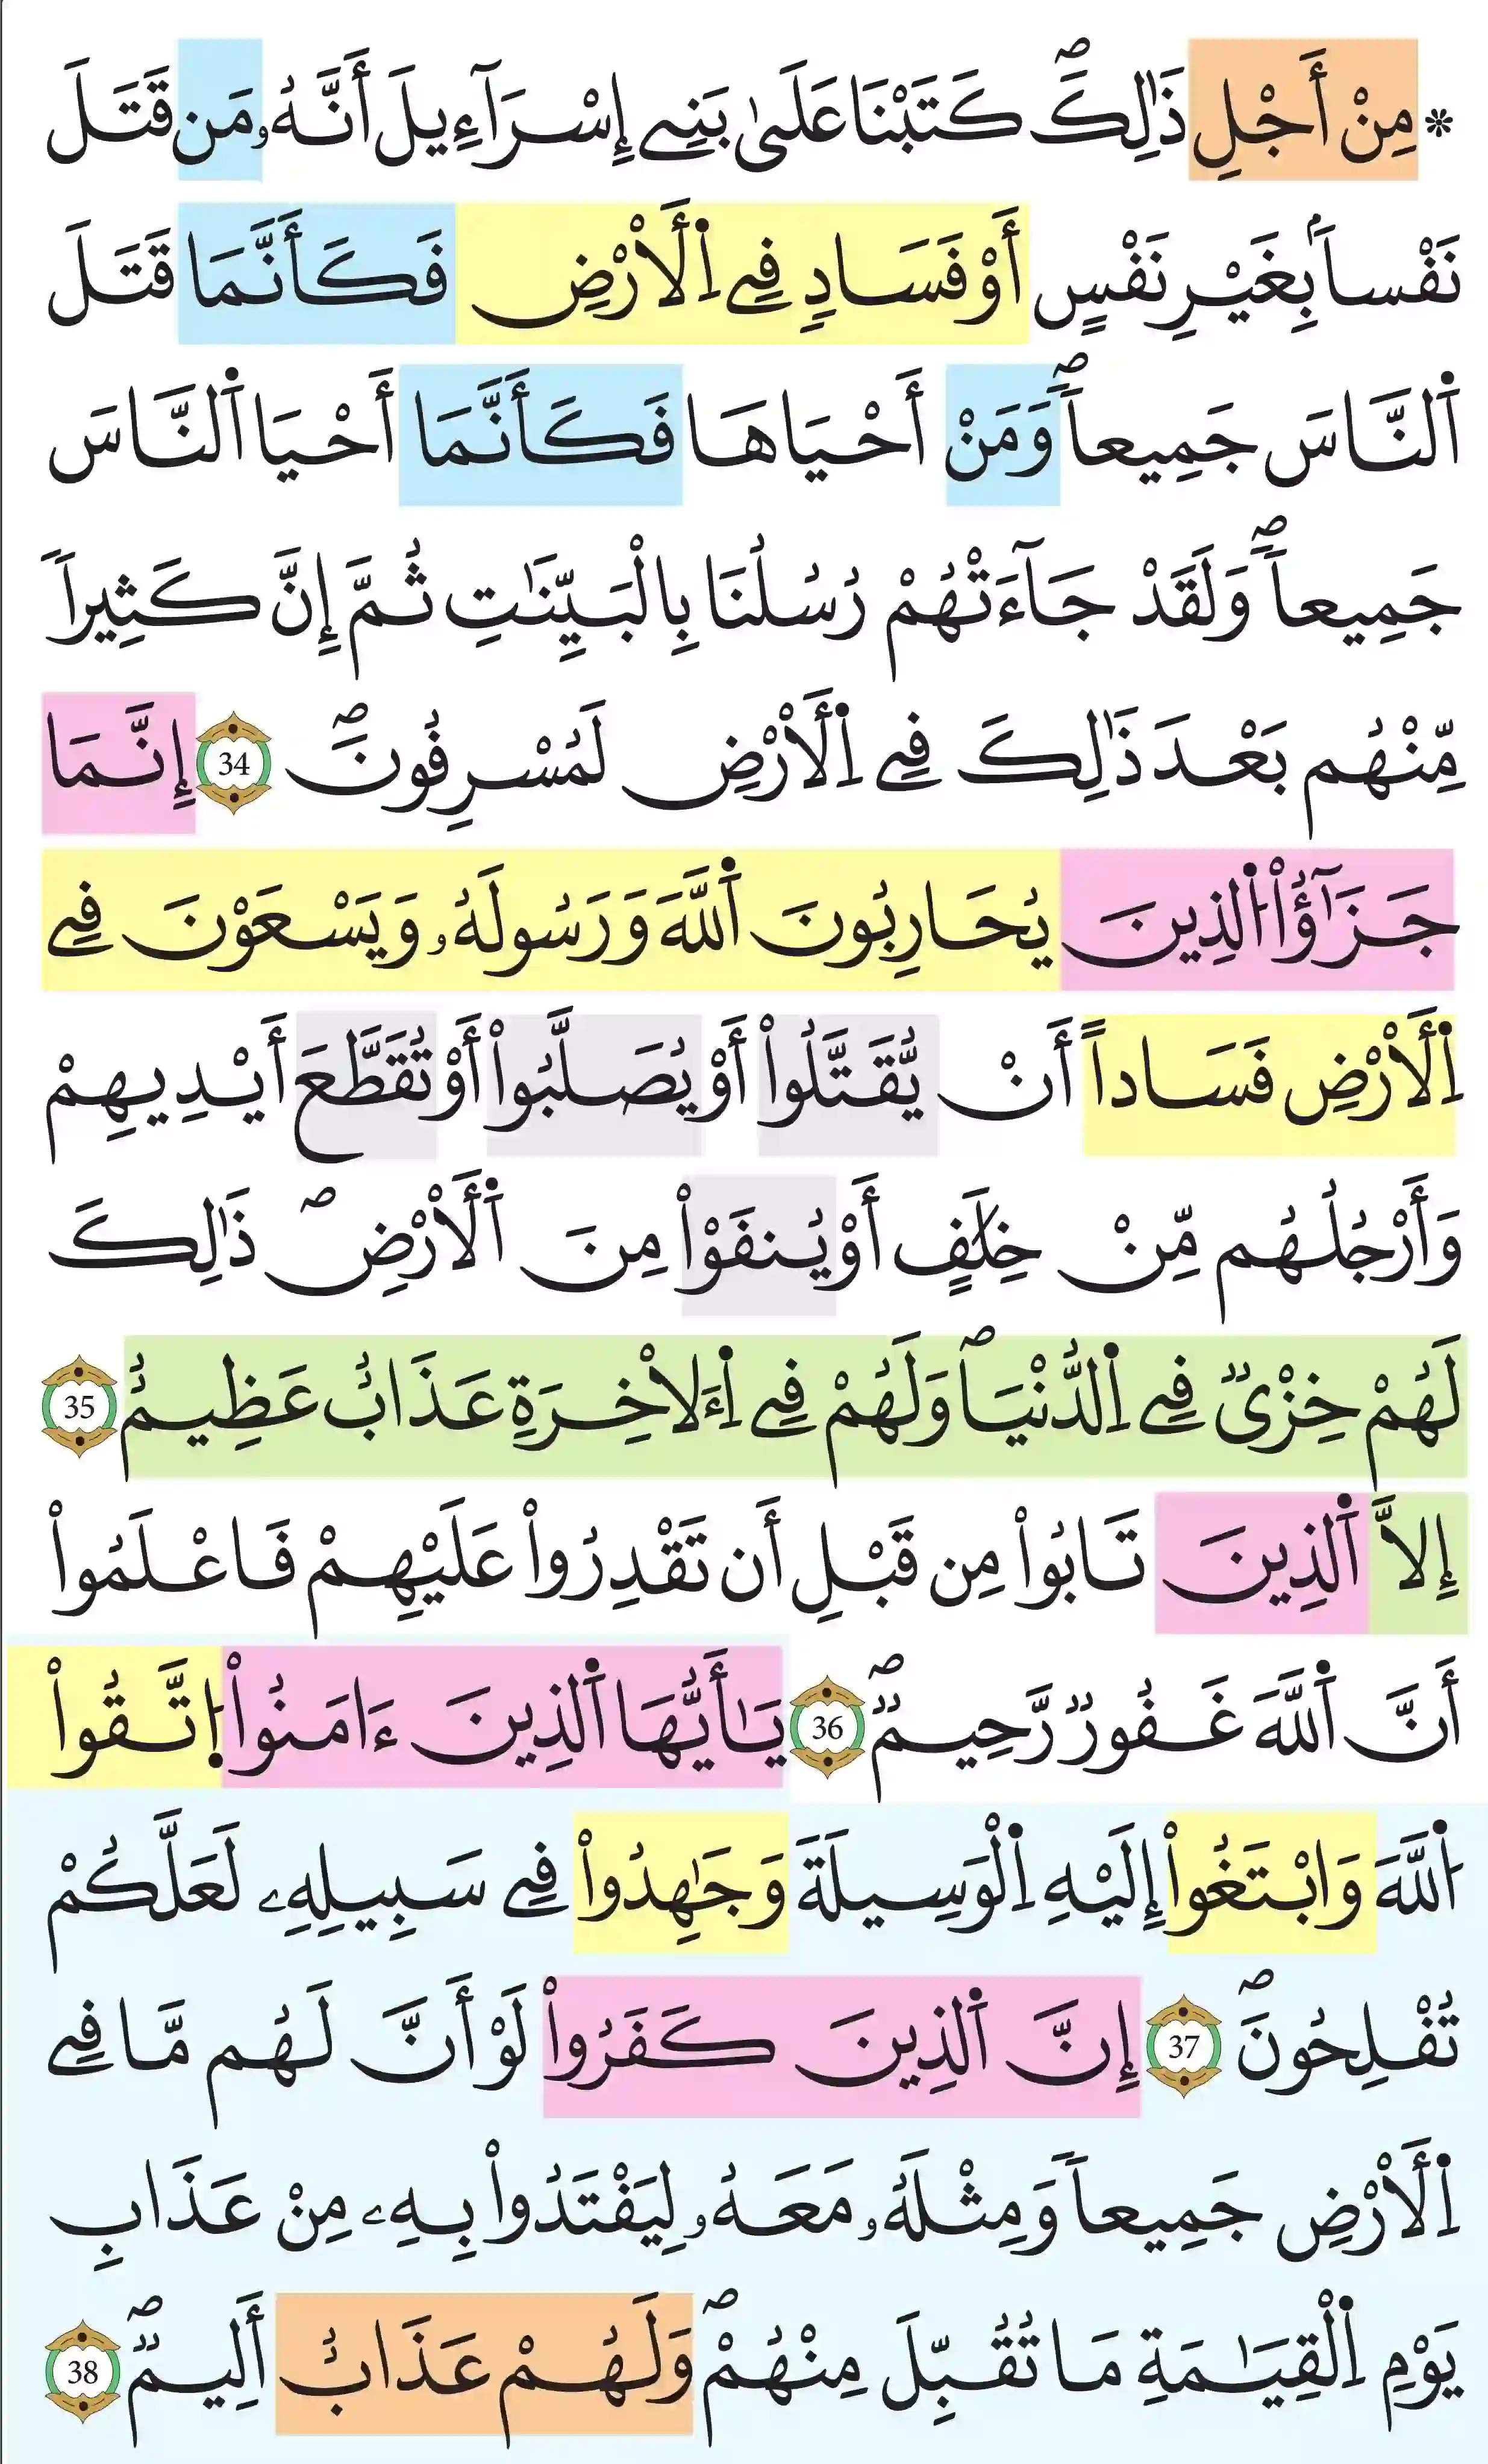 * مِنْ أَجْلِ ذَٰلِكَۖ كَتَبْنَا عَلَىٰ بَنِےٓ إِسْرَآءِيلَ أَنَّهُۥ مَن قَتَلَ
نَفْساَۢ بِغَيْرِ نَفْسٍ أَوْ فَسَادٖ فِے اِ۬لَارْضِ فَكَأَنَّمَا قَتَلَ
اَ۬لنَّاسَ جَمِيعاٗۖ وَمَنَ اَحْيَاهَا فَكَأَنَّمَا أَحْيَا اَ۬لنَّاسَ
جَمِيعاٗۖ وَلَقَدْ جَآءَتْهُمْ رُسُلُنَا بِالْبَيِّنَٰتِ ثُمَّ إِنَّ كَثِيراٗ
مِّنْهُم بَعْدَ ذَٰلِكَ فِے اِ۬لَارْضِ لَمُسْرِفُونَۖ 34 إِنَّمَا
جَزَٰٓؤُاْ اُ۬لذِينَ يُحَارِبُونَ اَ۬للَّهَ وَرَسُولَهُۥ وَيَسْعَوْنَ فِے
اِ۬لَارْضِ فَسَاداً أَنْ يُّقَتَّلُوٓاْ أَوْ يُصَلَّبُوٓاْ أَوْ تُقَطَّعَ أَيْدِيهِمْ
وَأَرْجُلُهُم مِّنْ خِلَٰفٍ أَوْ يُنفَوْاْ مِنَ اَ۬لَارْضِۖ ذَٰلِكَ
لَهُمْ خِزْيٞ فِے اِ۬لدُّنْيَاۖ وَلَهُمْ فِے اِ۬لَاخِرَةِ عَذَابٌ عَظِيمٌ 35
إِلَّا اَ۬لذِينَ تَابُواْ مِن قَبْلِ أَن تَقْدِرُواْ عَلَيْهِمْ فَاعْلَمُوٓاْ
أَنَّ اَ۬للَّهَ غَفُورٞ رَّحِيمٞۖ 36 يَٰٓأَيُّهَا اَ۬لذِينَ ءَامَنُواْ اُ۪تَّقُواْ
اُ۬للَّهَ وَابْتَغُوٓاْ إِلَيْهِ اِ۬لْوَسِيلَةَ وَجَٰهِدُواْ فِے سَبِيلِهِۦ لَعَلَّكُمْ
تُفْلِحُونَۖ 37 إِنَّ اَ۬لذِينَ كَفَرُواْ لَوْ أَنَّ لَهُم مَّا فِے
اِ۬لَارْضِ جَمِيعاٗ وَمِثْلَهُۥ مَعَهُۥ لِيَفْتَدُواْ بِهِۦ مِنْ عَذَابِ
يَوْمِ اِ۬لْقِيَٰمَةِ مَا تُقُبِّلَ مِنْهُمْۖ وَلَهُمْ عَذَابٌ أَلِيمٞۖ 38